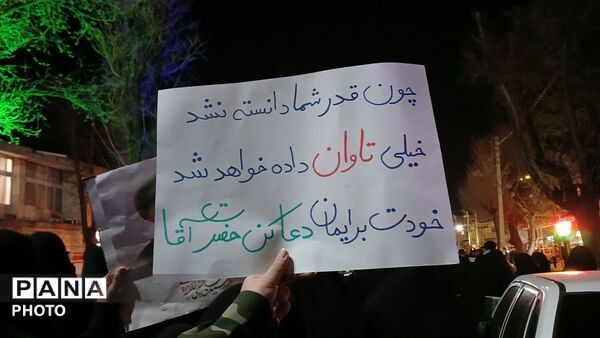 چون قدر شما دانسته نشد
خیلی تاوان داده خواهد شد
خودت برایمان دعا کن حضرت آقا
PANA
PHOTO